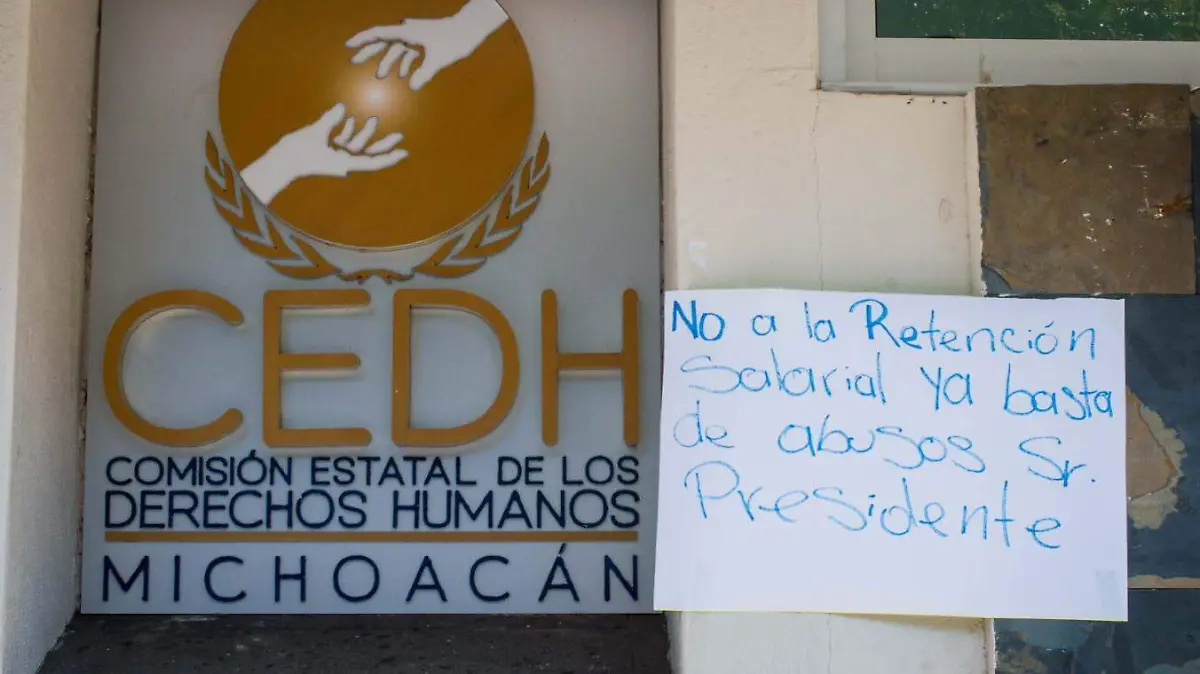 CEDH
COMISIÓN ESTATAL DE LOS
DERECHOS HUMANOS
MICHOACÁN
No a la Retención
Salarial ya basta
de abusos Sr.
Presidente